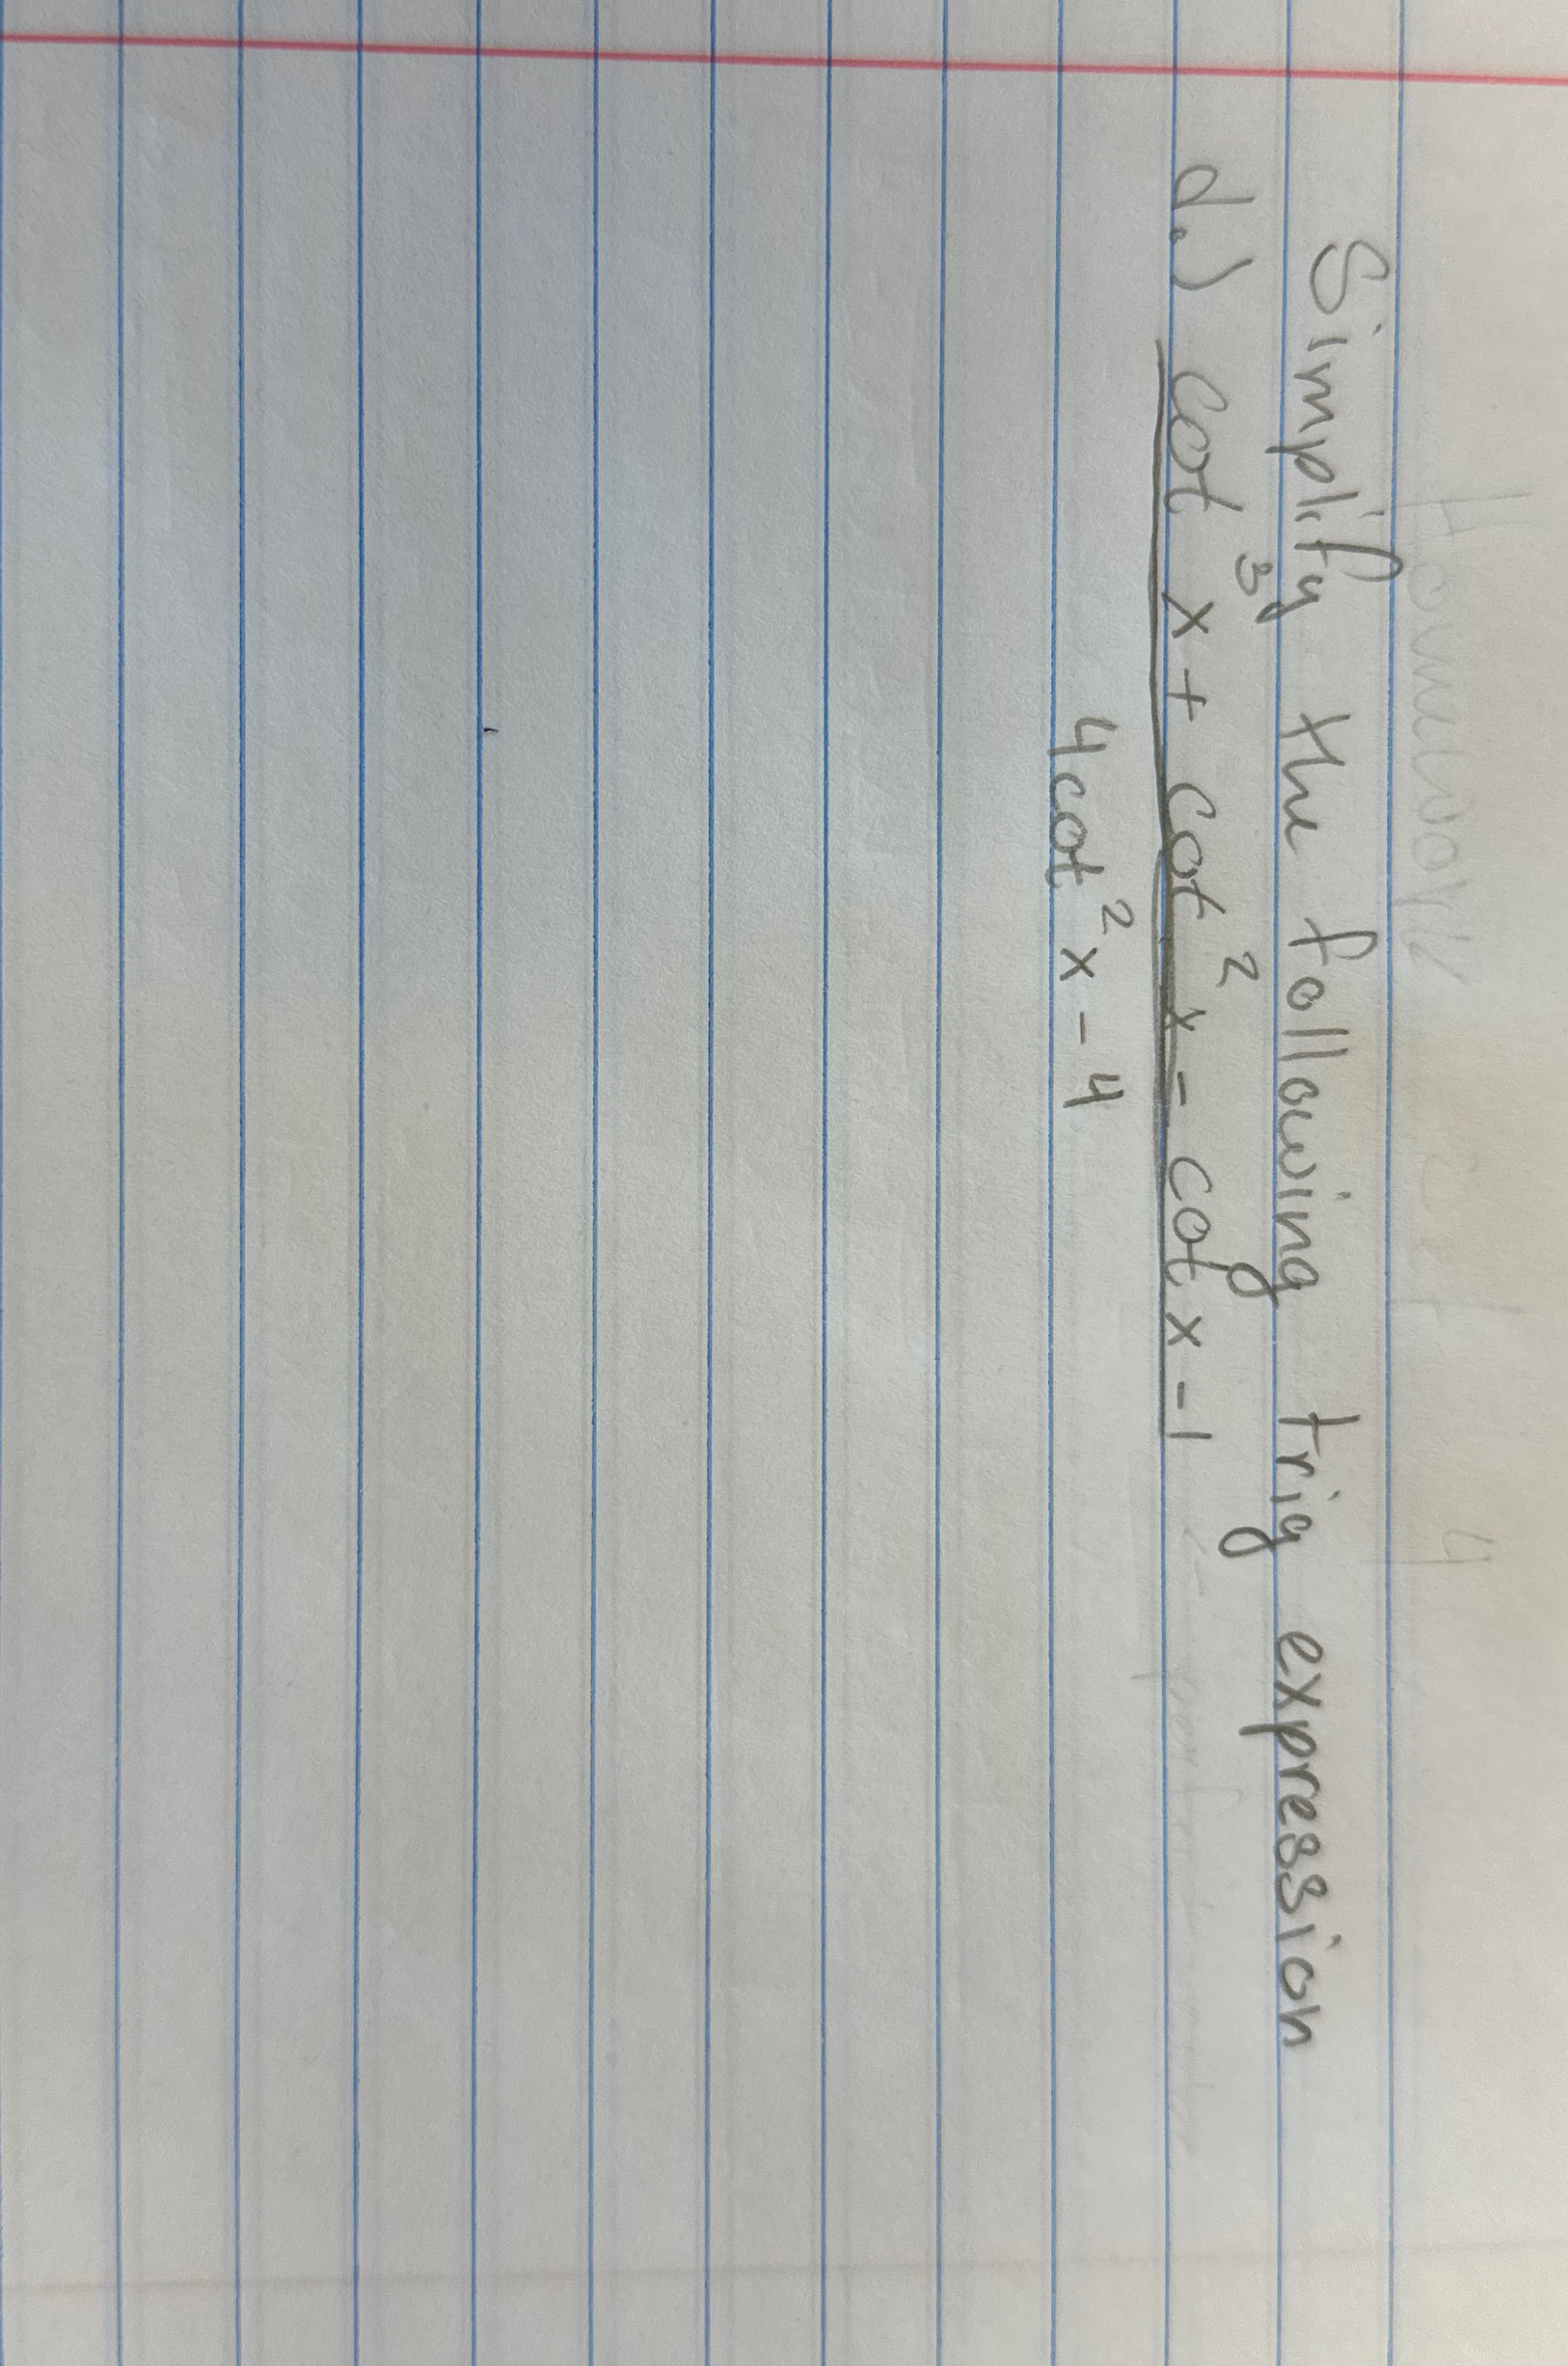 Simplify the following trig expression
d.) cot³x + cot²x - cot x - 1
4cot²x - 4